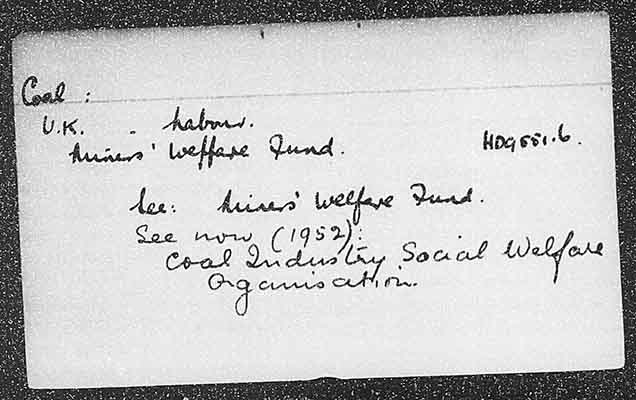 Coal :
U.K. - Labour.
Miners' Welfare Fund. HD9551.6.
See: Miners' Welfare Fund.
See now (1952):
Coal Industry Social Welfare
Organisation.